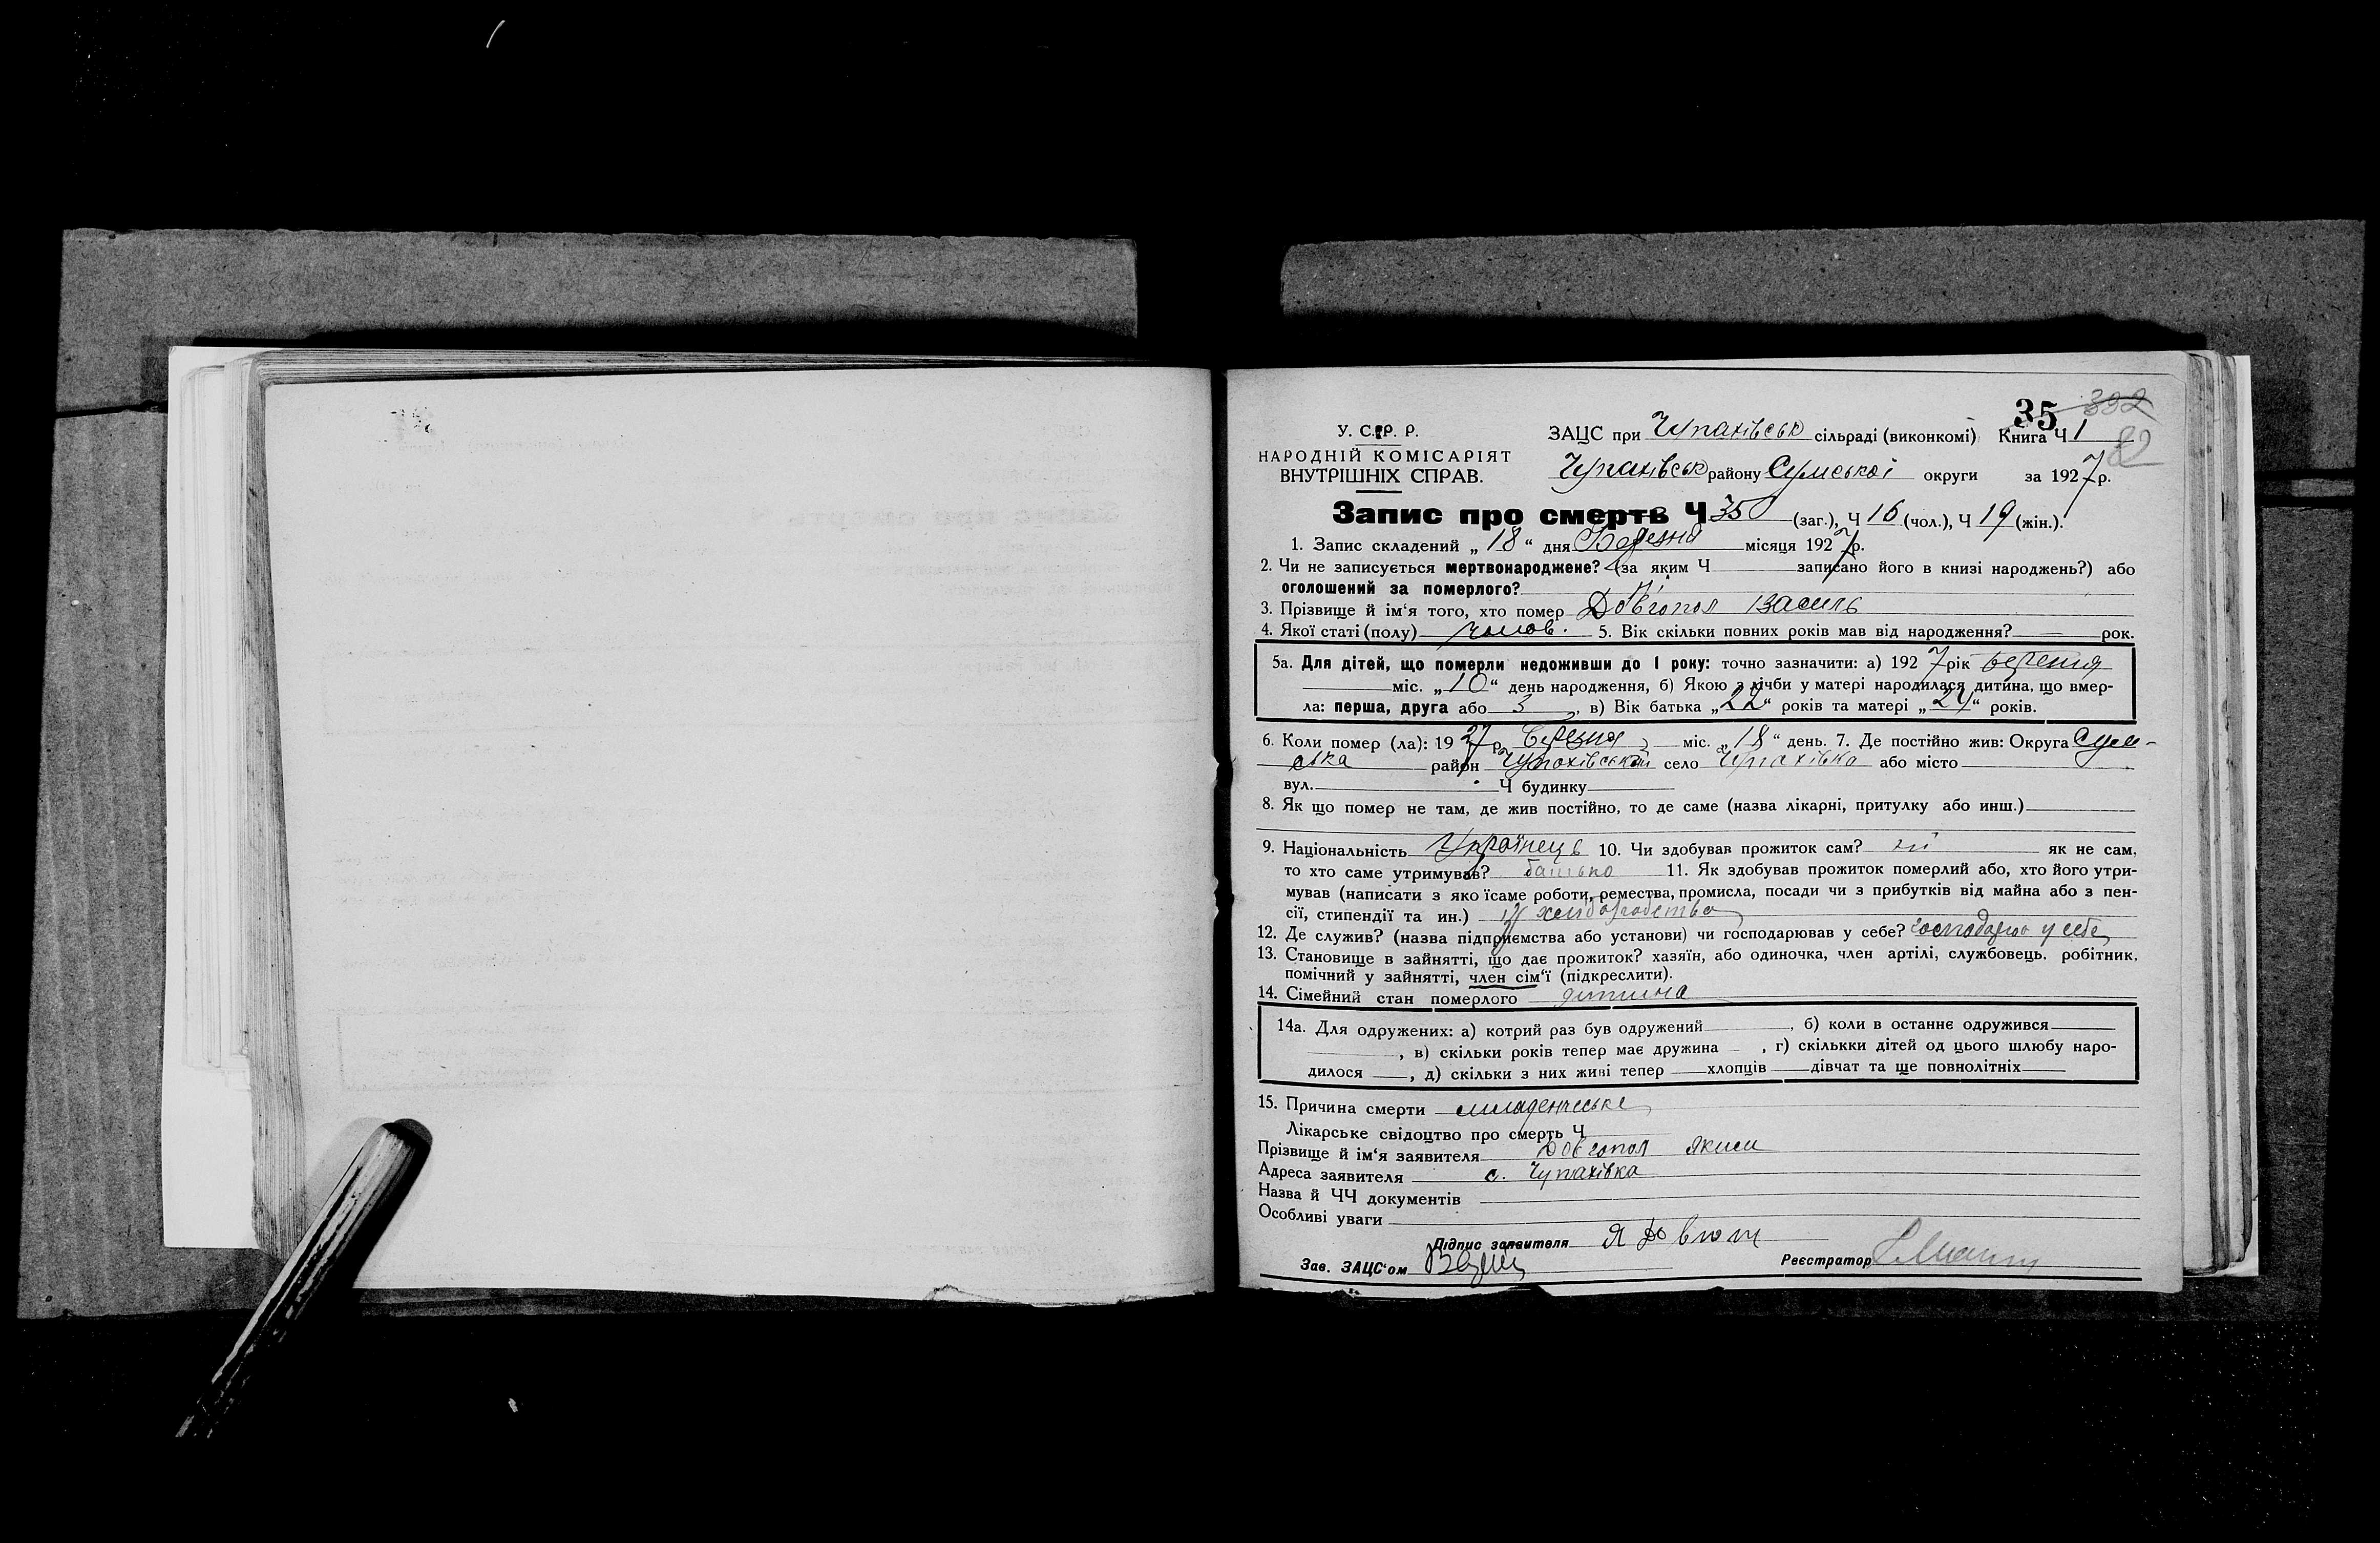 35 392
82
У. С. Р. Р. ЗАЦС при Чупахівськ сільраді (виконкомі) Книга Ч 1
НАРОДНІЙ КОМІСАРІЯТ
ВНУТРІШНІХ СПРАВ. Чупахівськ району Сумської округи за 1927 р.
Запис про смерть Ч 35 (заг.), Ч 16 (чол.), Ч 19 (жін.).
1. Запис складений „ 18 “ дня Березня місяця 1927 р.
2. Чи не записується мертвонароджене? (за яким Ч записано його в книзі народжень?) або
оголошений за померлого? Ні
3. Прізвище й ім‘я того, хто помер Довгопол Василь
4. Якої статі (полу) чолов. 5. Вік скільки повних років мав від народження? — рок.
5а. Для дітей, що померли недоживши до 1 року: точно зазначити: а) 1927 рік березня
міс. „ 10 “ день народження, б) Якою з лічби у матері народилася дитина, що вмер-
ла: перша, друга або 3, в) Вік батька „ 22 “ років та матері „ 24 “ років.
6. Коли помер (ла): 1927 р. березня міс. „ 18 “ день. 7. Де постійно жив: Округа Сум-
ська район Чупахівський село Чупахівка або місто
вул. Ч будинку
8. Як що помер не там, де жив постійно, то де саме (назва лікарні, притулку або инш.)
9. Національність Українець 10. Чи здобував прожиток сам? ні як не сам,
то хто саме утримував? батько 11. Як здобував прожиток померлий або, хто його утри-
мував (написати з яко їсаме роботи, ремества, промисла, посади чи з прибутків від майна або з пен-
сії, стипендії та ин.) із хліборобства
12. Де служив? (назва підприємства або установи) чи господарював у себе? господарює у себе
13. Становище в зайнятті, що дає прожиток? хазяїн, або одиночка, член артілі, службовець, робітник,
помічний у зайнятті, член сім‘ї (підкреслити).
14. Сімейний стан померлого дитина
14а. Для одружених: а) котрий раз був одружений , б) коли в останнє одружився
, в) скільки років тепер має дружина — , г) скількки дітей од цього шлюбу наро-
дилося , д) скільки з них живі тепер хлопців дівчат та ще повнолітніх
15. Причина смерти младенческе
Лікарське свідоцтво про смерть Ч
Прізвище й ім‘я заявителя Довгопол Яким
Адреса заявителя с. Чупахівка
Назва й ЧЧ документів
Особливі уваги
Підпис заявителя Я
Зав. ЗАЦС‘ом Реєстратор